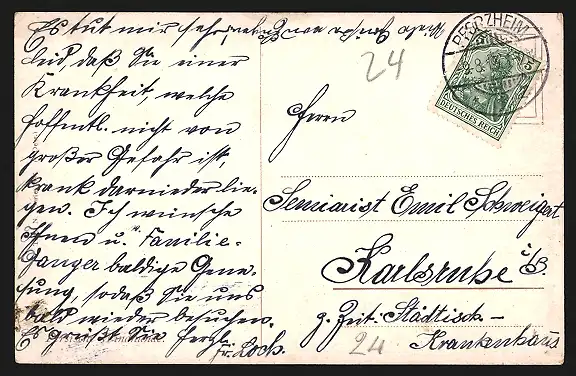 Es tut mir sehr
leid, daß Sie einer
Krankheit, welche
hoffentl. nicht von
großer Gefahr ist,
krank darniederlie-
gen. Ich wünsche
Ihnen u. Familie
baldige Gene-
sung, sodaß Sie uns
bald wieder besuchen.
Es grüßt Sie herzl.
Fr. Loch.
24
PFORZHEIM
DEUTSCHES REICH
5
Herrn
Seminarist Emil Schweigert
Karlsruhe i/B.
z. Zeit. Städtisch-
Krankenhaus
24